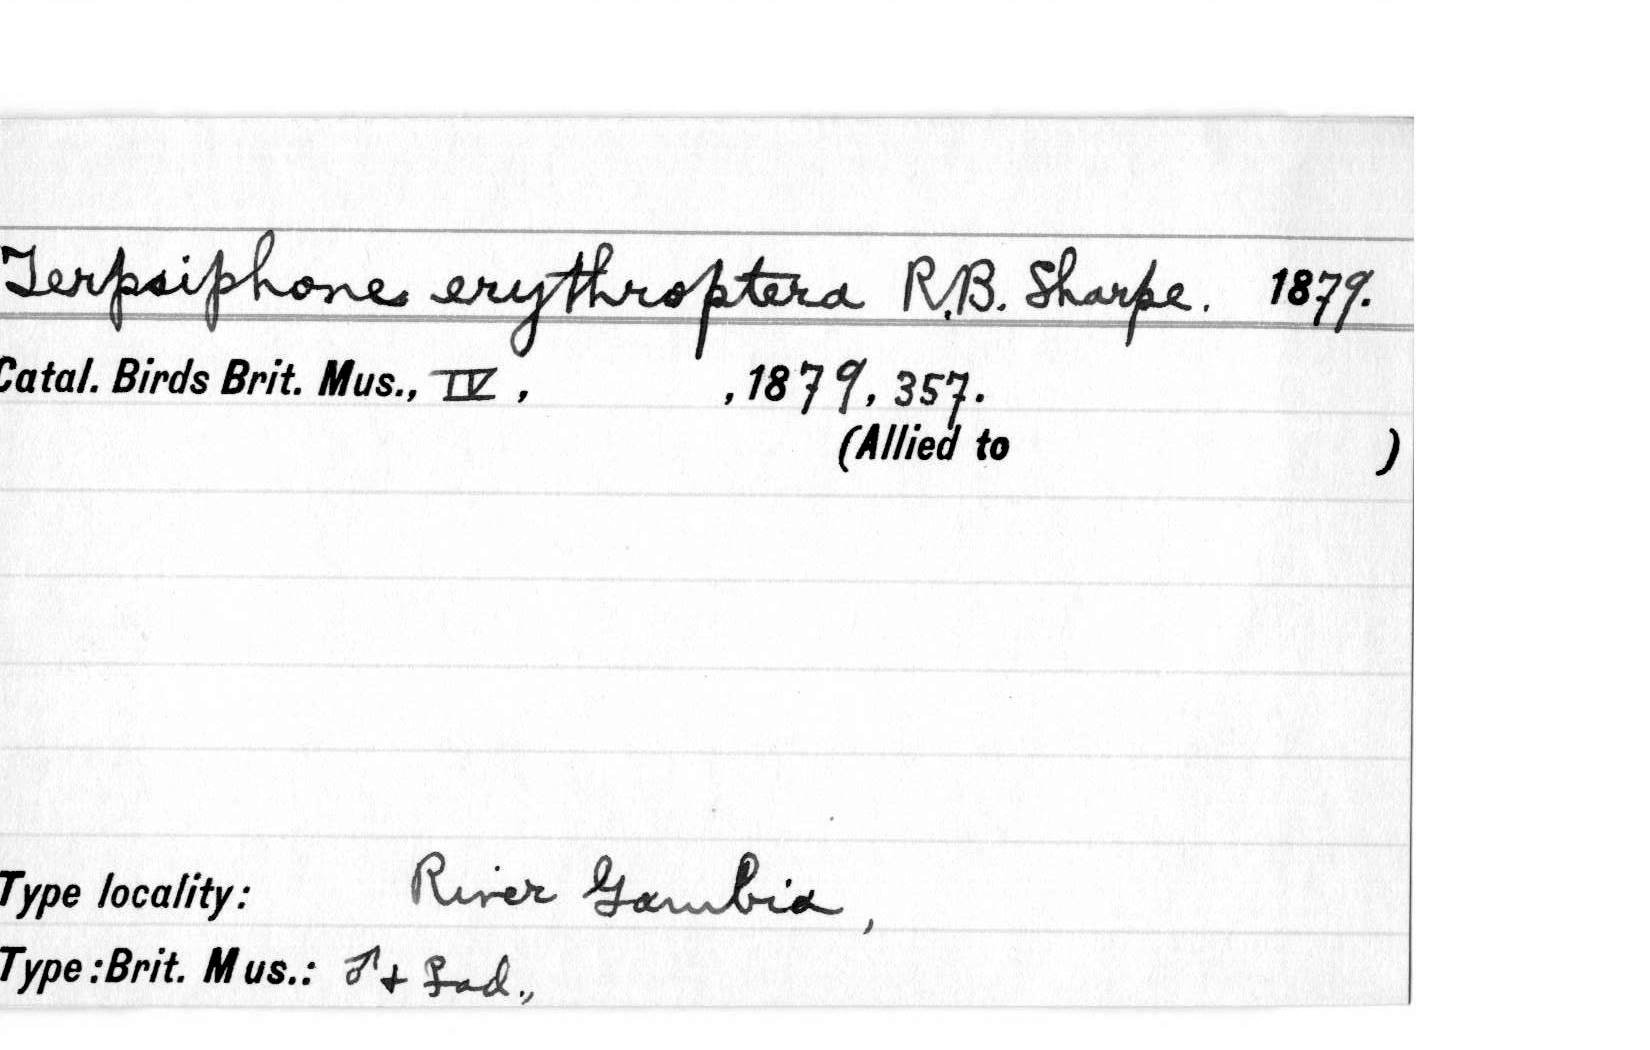 Terpsiphone erythroptera R.B. Sharpe. 1879.
Catal. Birds Brit. Mus., IV, , 1879, 357.
(Allied to )
Type locality: River Gambia,
Type: Brit. Mus.: ♂ + ♀ ad.,